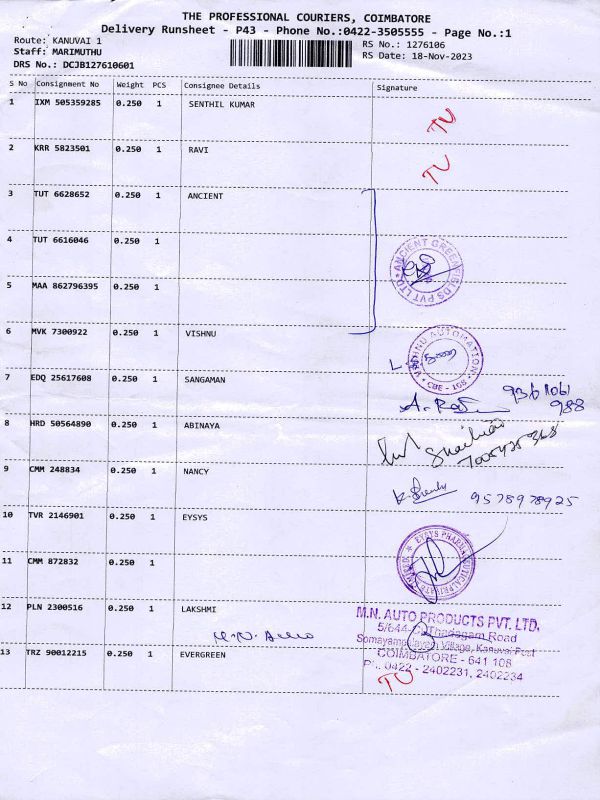 THE PROFESSIONAL COURIERS, COIMBATORE
Delivery Runsheet - P43 - Phone No.:0422-3505555 - Page No.:1
Route: KANUVAI 1
Staff: MARIMUTHU
DRS No.: DCJB127610601
RS No.: 1276106
RS Date: 18-Nov-2023
S No Consignment No Weight PCS Consignee Details Signature
1 IXM 505359285 0.250 1 SENTHIL KUMAR TU
2 KRR 5823501 0.250 1 RAVI TU
3 TUT 6628652 0.250 1 ANCIENT
4 TUT 6616046 0.250 1
ANCIENT GREENFIELDS PVT LTD
5 MAA 862796395 0.250 1
6 MVK 7300922 0.250 1 VISHNU
VISHNU AUTOMATION
CBE - 108
7 EDQ 25617608 0.250 1 SANGAMAN
8 HRD 50564890 0.250 1 ABINAYA
9 CMM 248834 0.250 1 NANCY
9578978925
10 TVR 2146901 0.250 1 EYSYS
EYSYS PHARMACEUTICAL PRIVATE LIMITED
11 CMM 872832 0.250 1
12 PLN 2300516 0.250 1 LAKSHMI
M.N. Auto
M.N. AUTO PRODUCTS PVT. LTD.
5/644-C, Thadagam Road
Somayampalayam Village, Kanuvai Post
COIMBATORE - 641 108
Ph. 0422 - 2402231, 2402234
13 TRZ 90012215 0.250 1 EVERGREEN TU